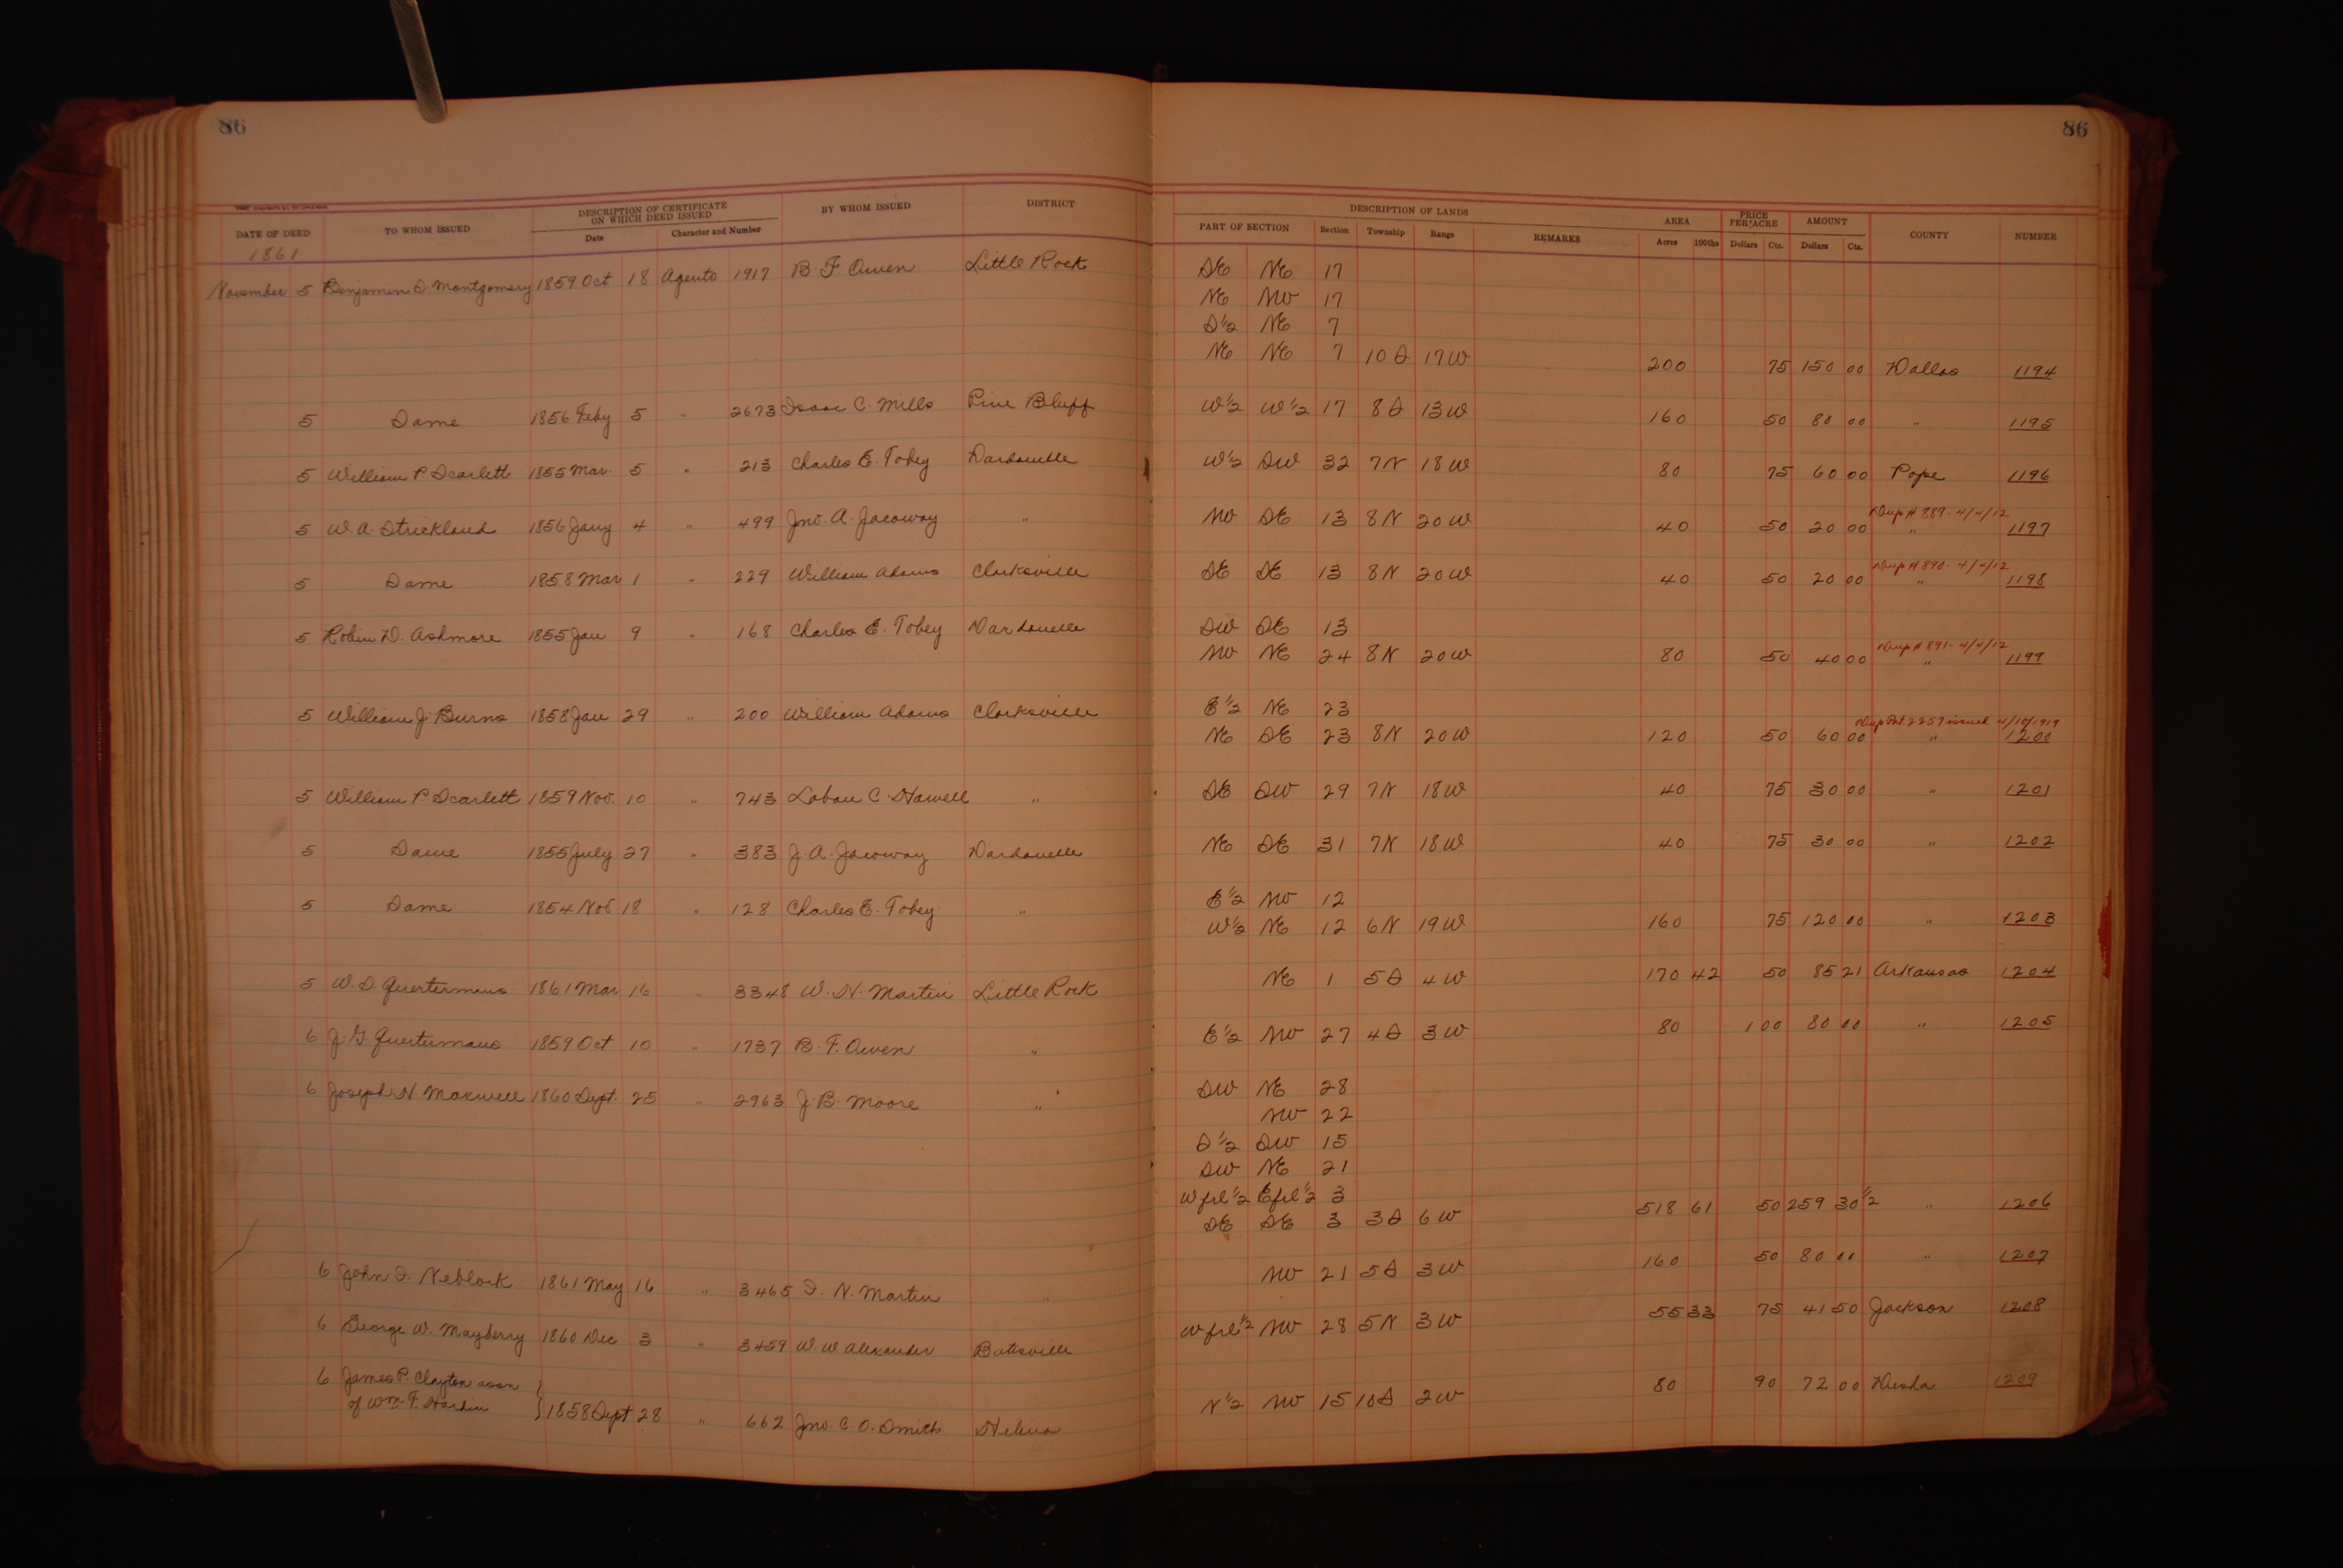 86
86
DATE OF DEED
TO WHOM ISSUED
DESCRIPTION OF CERTIFICATE
ON WHICH DEED ISSUED
Date
Character and Number
BY WHOM ISSUED
DISTRICT
PART OF SECTION
DESCRIPTION OF LANDS
Section
Township
Range
REMARKS
AREA
Acres
100ths
PRICE
PER ACRE
Dollars
Cts.
AMOUNT
Dollars
Cts.
COUNTY
NUMBER
1861
November 5 Benjamin S. Montgomery 1859 Oct 18 Agents 1917 B F Owen Little Rock SE NE 17
NE NW 17
S½ NE 7
NE NE 7 10 S 17 W 200 75 150 00 Dallas 1194
5 Same 1856 Feby 5 " 2673 Isaac C. Mills Pine Bluff W½ W½ 17 8 S 13 W 160 50 80 00 " 1195
5 William P. Scarlett 1855 Mar. 5 " 213 Charles E. Tobey Dardanelle W½ SW 32 7 N 18 W 80 75 60 00 Pope 1196
Dup # 889 - 4/4/12
5 W. A. Strickland 1856 Jany 4 " 499 Jno. A. Jacoway " NW SE 13 8 N 20 W 40 50 20 00 " 1197
Dup # 890 - 4/4/12
5 Same 1858 Mar 1 " 229 William Adams Clarksville SE SE 13 8 N 20 W 40 50 20 00 " 1198
5 Robin D. Ashmore 1855 Jan 9 " 168 Charles E. Tobey Dardanelle SW SE 13
Dup # 891 - 4/4/12
NW NE 24 8 N 20 W 80 50 40 00 " 1199
5 William J. Burns 1858 Jan 29 " 200 William Adams Clarksville E½ NE 23
Dup Pat 2257 issued 4/10/1919
NE SE 23 8 N 20 W 120 50 60 00 " 1200
5 William P. Scarlett 1859 Nov. 10 " 743 Laban C. Howell " SE SW 29 7 N 18 W 40 75 30 00 " 1201
5 Same 1855 July 27 " 383 J. A. Jacoway Dardanelle NE SE 31 7 N 18 W 40 75 30 00 " 1202
5 Same 1854 Nov 18 " 128 Charles E. Tobey " E½ NW 12
W½ NE 12 6 N 19 W 160 75 120 00 " 1203
5 W. S. Quertermous 1861 Mar 16 " 3348 W. N. Martin Little Rock NE 1 5 S 4 W 170 42 50 85 21 Arkansas 1204
6 J. G. Quertermous 1859 Oct 10 " 1737 B. F. Owen " E½ NW 27 4 S 3 W 80 1 00 80 00 " 1205
6 Joseph N Maxwell 1860 Sept. 25 " 2963 J. B. Moore " SW NE 28
NW 22
S½ SW 15
SW NE 21
W frl ½ E frl ½ 3
SE SE 3 3 S 6 W 518 61 50 259 30½ " 1206
6 John S. Neblock 1861 May 16 " 3465 S. N. Martin " NW 21 5 S 3 W 160 50 80 00 " 1207
6 George W. Mayberry 1860 Dec 3 " 3459 W. W Alexander Batesville W frl ½ NW 28 5 N 3 W 55 33 75 41 50 Jackson 1208
6 James P. Clayton assn
of Wm. F. Hardin } 1858 Sept 28 " 662 Jno. C. O. Smith Helena N½ NW 15 10 S 2 W 80 90 72 00 Desha 1209